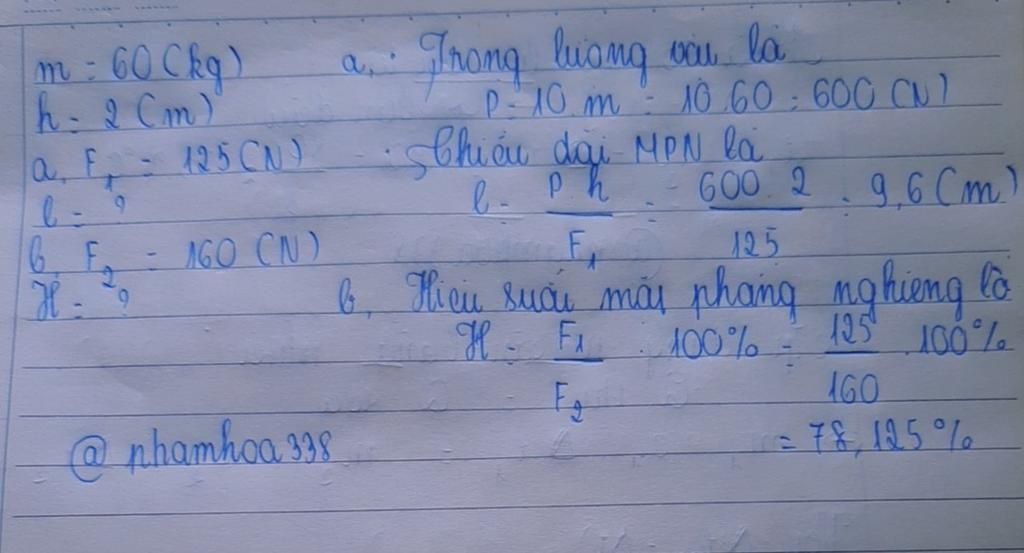 m = 60 (kg)
h = 2 (m)
a, F₁ = 125 (N)
l = ?
b, F₂ = 160 (N)
H = ?
a, · Trọng lượng vật là
P = 10.m = 10.60 = 600 (N)
· Chiều dài MPN là
l = P.h / F₁ = 600.2 / 125 = 9,6 (m)
b, Hiệu suất mặt phẳng nghiêng là
H = F₁ / F₂ . 100% = 125 / 160 . 100%
= 78,125%
@ nhamhoa338